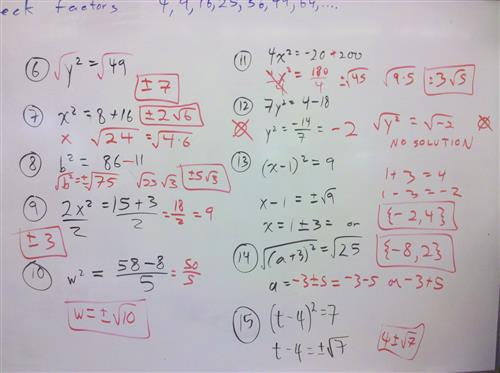 eck factors 4, 9, 16, 25, 36, 49, 64, ...
⑥ √y² = √49
±7
⑦ x² = 8 + 16 ±2√6
x √24 = √4·6
⑧ b² = 86 - 11
√b² = ±√75 √25 √3 ±5√3
⑨ 2x²/2 = 15 + 3/2 = 18/2 = 9
±3
⑩ w² = 58 - 8/5 = 50/5
w = ±√10
⑪ 4x² = -20 + 200
x² = 180/4 = ±√45 √9·5 ±3√5
⑫ 7y² = 4 - 18
y² = -14/7 = -2 √y² = √-2
NO SOLUTION
⑬ (x - 1)² = 9
1 + 3 = 4
x - 1 = ±√9 1 - 3 = -2
x = 1 ± 3 = or {-2, 4}
⑭ √(a + 3)² = √25 {-8, 2}
a = -3 ± 5 = -3 - 5 or -3 + 5
⑮ (t - 4)² = 7
t - 4 = ±√7 4 ± √7